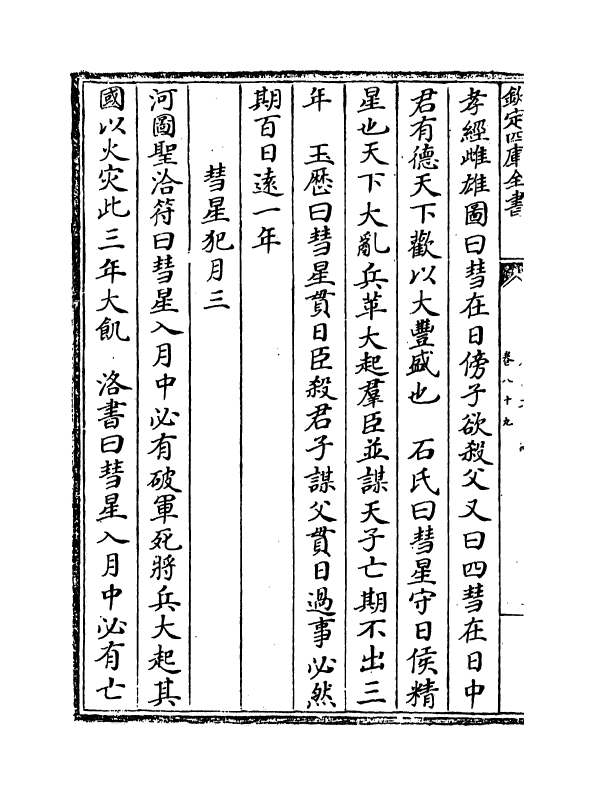 欽定四庫全書
卷八十九
孝經雌雄圖曰彗在日傍子欲殺父又曰四彗在日中
君有德天下歡以大豐盛也　石氏曰彗星守日侯精
星也天下大亂兵革大起羣臣並謀天子亡期不出三
年　玉厯曰彗星貫日臣殺君子謀父貫日過事必然
期百日遠一年
彗星犯月三
河圖聖洽符曰彗星入月中必有破軍死將兵大起其
國以火灾此三年大飢　洛書曰彗星入月中必有亡